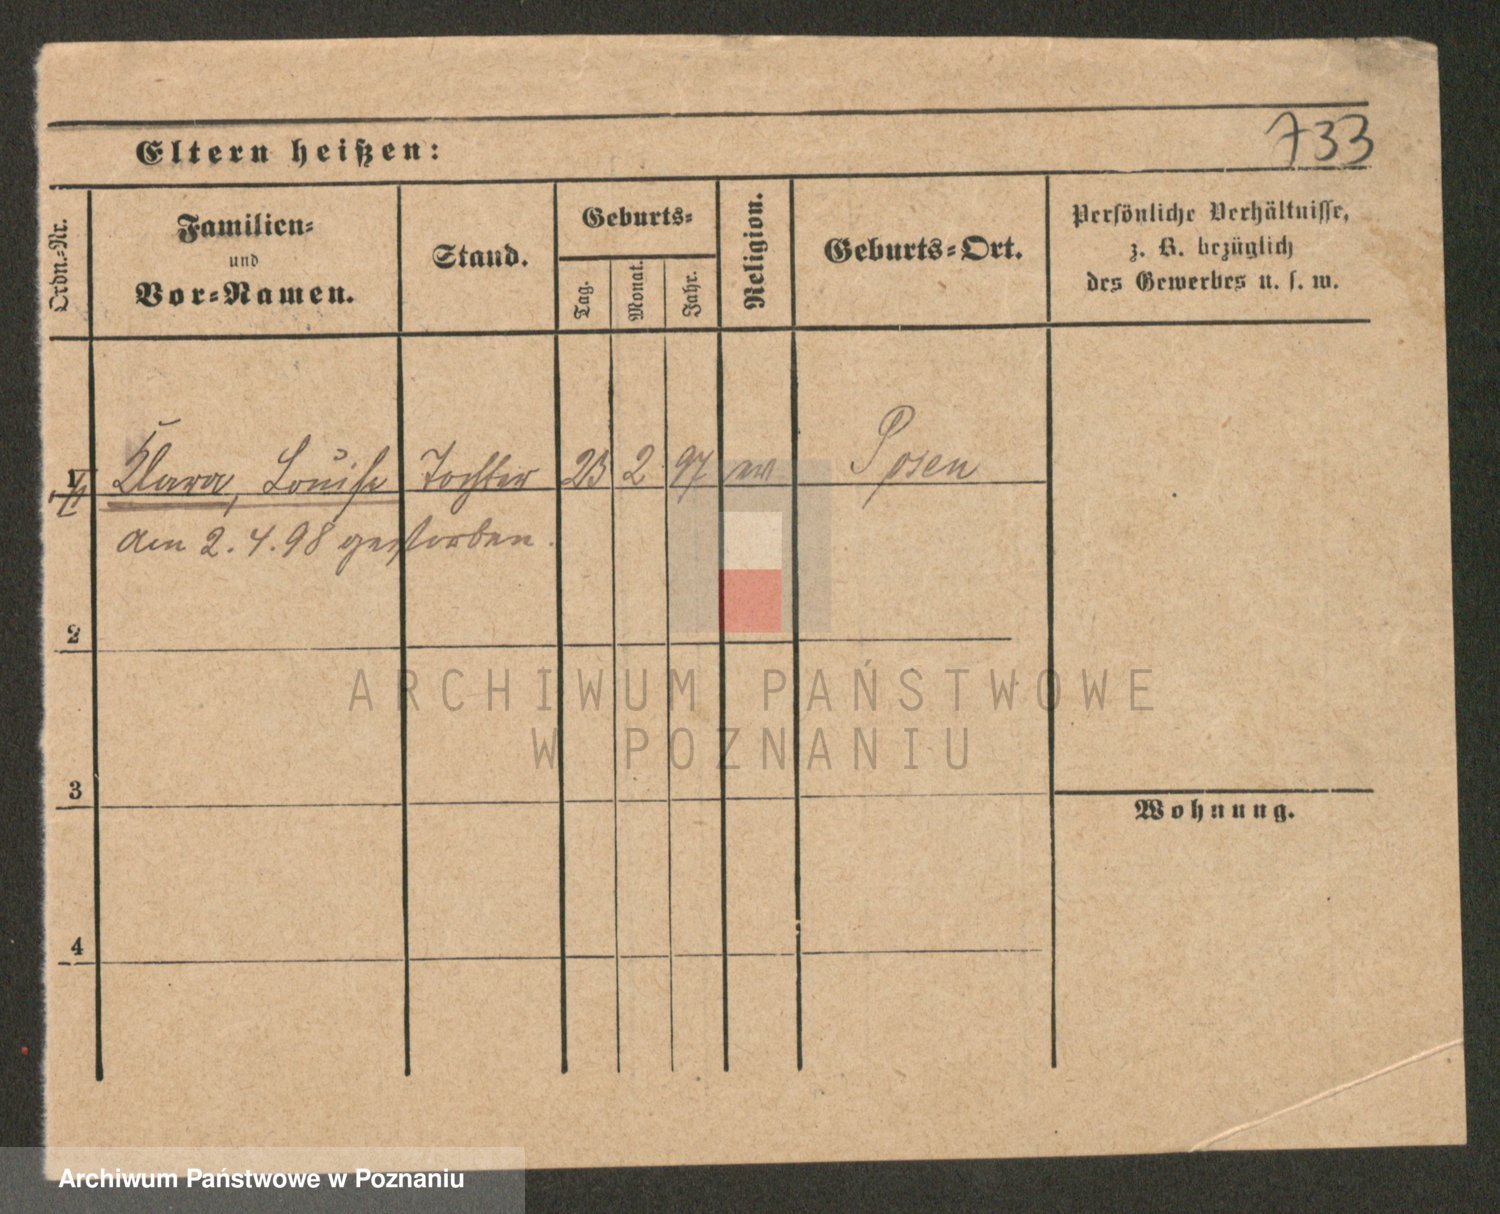 733
Eltern heißen:
Ordn.-Nr.
Familien-
und
Vor-Namen.
Stand.
Geburts-
Tag.
Monat.
Jahr.
Religion.
Geburts-Ort.
Persönliche Verhältnisse,
z. B. bezüglich
des Gewerbes u. s. w.
1 Klara, Louise Tochter 23 2 97 ev Posen
am 2.4.98 gestorben.
2
3
Wohnung.
4
ARCHIWUM PAŃSTWOWE
W POZNANIU
Archiwum Państwowe w Poznaniu